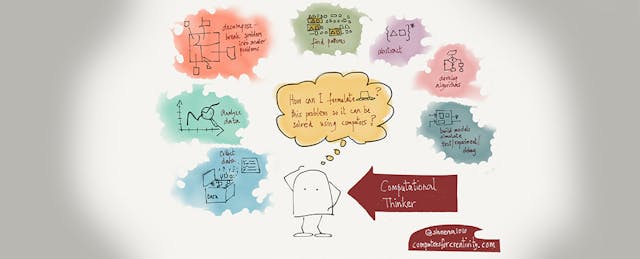 decompose-
break problem
into smaller
problems
find patterns
abstract
develop
algorithms
Analyse
data
How can I formulate ?
this problem so it can be
solved using computers?
build models
simulate
test/experiment/
debug
Collect
data
DATA
Computational
Thinker
computersforcreativity.com